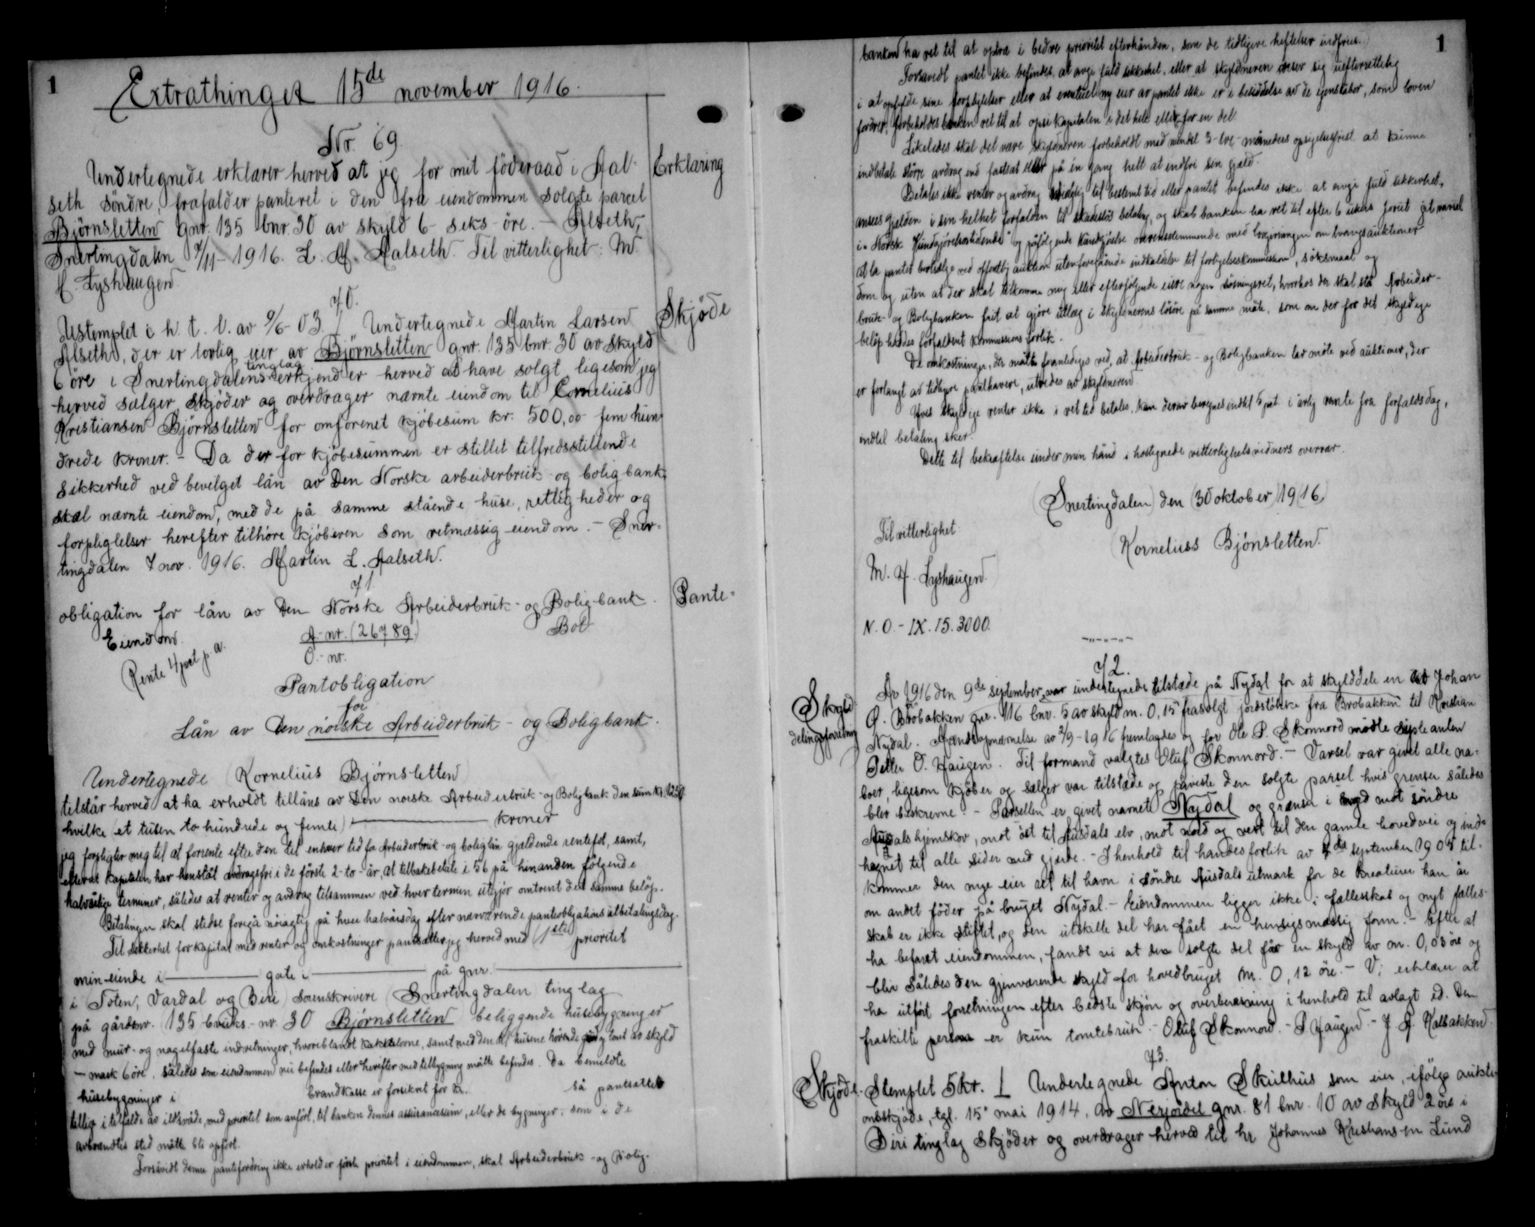 1
Extrathinget 15de november 1916.
Nr. 69.
Erklæring
Undertegnede erklærer herved at jeg for mit föderaad i Aal-
seth söndre frafalder panteret i den fra eiendommen solgte parcel
Björnsletten gnr. 135 bnr. 30 av skyld 6 - seks - öre. - Alseth,
Snertingdalen 7/11 - 1916. L. M. Aalseth. Til vitterlighet: M.
H. Lyshaugen
70.
Skjöde
Ustemplet i h. t. l. av 9/6 - 03. Undertegnede Martin Larsen
Alseth, der er lovlig eier av Björnsletten gnr. 135 bnr. 30 av skyld
6 öre i Snertingdalens tinglag erkjender herved at have solgt ligesom jeg
herved sælger skjöder og overdrager nævnte eiendom til Cornelius
Kristiansen Björnsletten for omforenet kjöbesum kr. 500,00 fem hun-
drede kroner. - Da der for kjöbesummen er stillet tilfredsstillende
sikkerhed ved bevilget lån av Den Norske arbeiderbruk - og boligbank,
skal nævnte eiendom, med de på samme stående huse, rettigheder og
forpligtelser herefter tilhöre kjöberen som retmæssig eiendom. - Sner-
tingdalen 7 nov. 1916. Martin L. Aalseth.
71.
Pante-
obligation for lån av Den Norske Arbeiderbruk - og Bolig-bank.
Eiendom
A.-nr. (26789)
Bol-
Rente 4 pct. p. a.
O.-nr.
Pantobligation
for
Lån av Den norske Arbeiderbruk - og Boligbank.
Undertegnede (Kornelius Björnsletten)
tilstår herved at ha erholdt tillåns av Den norske Arbeiderbruk - og Boligbank den sum kr. 1250
hvilke (et tusen to hundrede og femti) kroner
jeg forpligter meg til at forrente efter den til enhver tid for Arbeiderbruk - og boliglån gjældende rentefot, samt,
efterat kapitalen har henstått avdragsfri i de förste 2 - to - år, at tilbakebetale i 56 på hinanden fölgende
halvårlige terminer, således at renter og avdrag tilsammen ved hver termin utgjör omtrent det samme belöp.
Betalingen skal stedse foregå nöiagtig på hver halvårsdag efter nærværende pantobligations utbetalingsdag.
Til sikkerhet for kapital med renter og omkostninger pantsætter jeg herved med 1ste prioritet
min eiende i gate i på gnr.
i (Toten, Vardal og Biri) sorenskriveri (Snertingdalen tinglag
på gårdsnr. 135 bruks-nr. 30 Björnsletten beliggende husebygninger
med mur - og nagelfaste indretninger, hvoriblandt kakkelovne, samt med den til husene hörende grund og tomt av skyld
- mark 6 öre, således som eiendommen nu befindes eller herefter med tilbygning måtte befindes. Da bemeldte
husebygninger i brandkasse er forsikret for kr. så pantsættes
tillige i tilfælde av ildsvåde, med prioritet som anfört, til banken dennes assuransesum, eller de bygninger, som i de
avbrændtes sted måtte bli opfört.
Forsåvidt denne pantefordring ikke erholder förste prioritet i eiendommen, skal Arbeiderbruk - og Bolig-
1
banken ha ret til at optræ i bedre prioritet efterhånden, som de tidligere heftelser indfries.
Forsåvidt pantet ikke befindes at avgi fuld sikkerhet, eller at skyldneren viser sig uefterrettelig
i at opfylde sine forpligtelser eller at eventuel ny eier av pantet ikke er i besiddelse av de egenskaber, som loven
fordrer, forbeholdes banken ret til at opsi kapitalen i det hele eller for en del.
Likeledes skal det være skyldneren forbeholdt med mindst 3 - tre - måneders opsigelsesfrist at kunne
indbetale större avdrag end fastsat eller på én gang helt at indfri sin gjæld.
Betales ikke renter og avdrag til bestemt tid eller pantet befindes ikke at avgi fuld sikkerhet,
ansees gjælden i sin helhet forfalden til skadeslös betaling, og skal banken ha ret til efter 6 ukers forut git varsel
i "Norske Kundgjörelsestidende" og påfölgende kundgjörelse overensstemmende med lovgivningen om tvangsauktioner
at la pantet bortsælge ved offentlig auktion uten foregående indkaldelse til forlikelseskommission, söksmaal og
dom og uten at der skal tilkomme mig eller efterfölgende eiere nogen lösningsret, hvorhos der skal stå Arbeider-
bruk - og Boligbanken frit at gjöre utlæg i skyldnerens lösöre på samme måte, som om der for det skyldige
belöp hadde forholdt kommissions forlik.
De omkostninger, der måtte foranlediges ved, at Arbeiderbruk - og Boligbanken lar möte ved auktioner, der
er forlangt av tidligere panthavere, utredes av skyldneren.
Hvis skyldige renter ikke i ret tid betales, kan derav beregnes indtil 6 pct. i årlig rente fra forfaldsdag,
indtil betaling sker.
Dette til bekræftelse under min hånd i hostegnede vitterlighetsvidners overvær.
(Snertingdalen) den (30 oktober) 1916.
Til vitterlighet
Korneliuss Björnsletten.
M. H. Lyshaugen
N. O. - IX. 15. 3000.
72.
Skyld
delingsforretning
Av 1916 den 9de september var undertegnede tilstede på Nydal for at skylddele en av Johan
O. Brobakken gnr. 116 bnr. 5 av skyld m. 0,15 frasolgt jordstökke fra Brobakken til Kristian
Nydal. Mændsopnævnelse av 2/9 - 1916 fremlagdes og for Ole P. Skonnord mödte supleanten
Petter O. Haugen. Til formand valgtes Oluf Skonnord. - Varsel var givet alle na-
boer, ligesom kjöber og sælger var tilstede og påviste den solgte parsel hvis grenser således
blev beskrevne: - Parsellen er givet navnet Nydal og grænser i syd mot söndre
Ausdals hjemskov, mot öst til Ausdals elv, mot nord og vest til den gamle hovedvei og ind-
hegnet til alle sider med gjerde. - I henhold til handelsforlik av september 1905 til-
kommer den nye eier ret til havn i söndre Ausdals utmark for de kreaturer han år
om andet föder på bruget Nydal. - Eiendommen ligger ikke i fællesskab og nyt fælles-
skab er ikke stiftet, og den utskilte del har fået en hensigsmæssig form. - Efter at
ha befaret eiendommen, fandt vi at den solgte del får en skyld av m. 0,03 öre og
blir således den gjenværende skyld for hovedbruget m. 0,12 öre. - Vi erklærer at
ha utfört forretningen efter bedste skjön og overbevisning i henhold til avlagt ed. Den
fraskilte parsel er kun tomtebruk. - Oluf Skonnord - P. Haugen - J. A. Kalbakken
73.
Skjöde
Stemplet 5 kr. Undertegnede Anton Skulhus som eier, ifölge auksti-
onsskjöde, tgl. 15 mai 1914, av Nerjordet gnr. 81 bnr. 10 av skyld 2 öre i
Biri tinglag skjöder og overdrager herved til hr. Johannes Kristiansen Lund